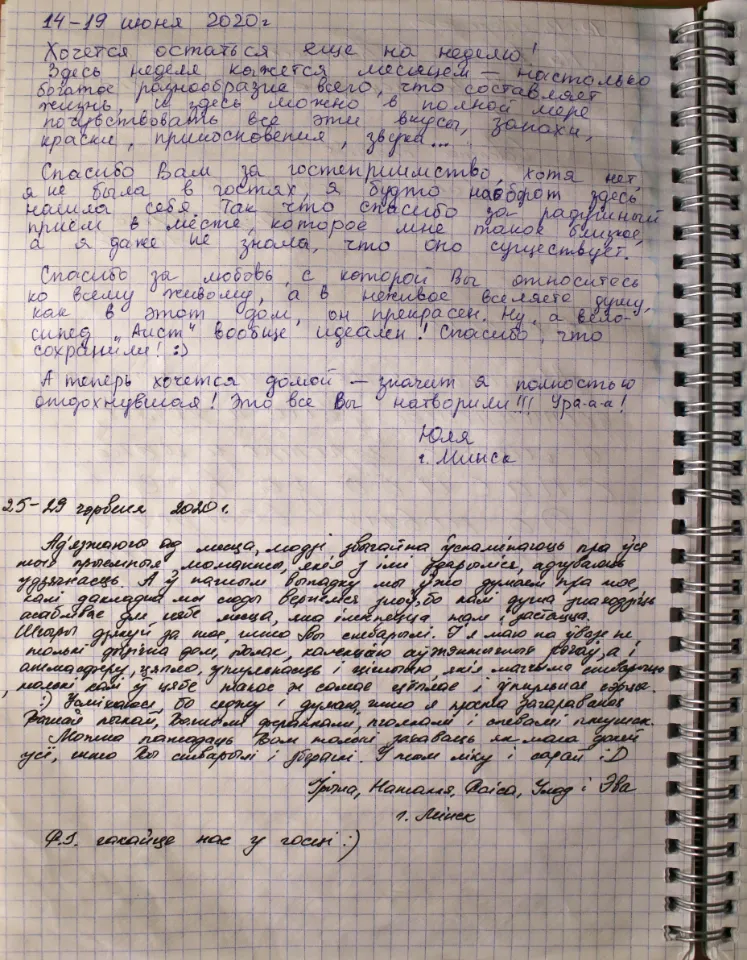 14-19 июня 2020г
Хочется остаться еще на неделю!
Здесь неделя кажется месяцем – настолько
богатое разнообразие всего, что составляет
жизнь, и здесь можно в полной мере
почувствовать все эти вкусы, запахи,
краски, прикосновения, звуки...
Спасибо Вам за гостеприимство, хотя нет,
я не была в гостях, я будто наоборот здесь
нашла себя. Так что спасибо за радушный
приём в месте, которое мне такое близкое,
а я даже не знала, что оно существует.
Спасибо за любовь, с которой Вы относитесь
ко всему живому, а в неживое вселяете душу,
как в этот дом, он прекрасен. Ну, а вело-
сипед „Аист" вообще идеален! Спасибо, что
сохранили! :)
А теперь хочется домой – значит я полностью
отдохнувшая! Это все Вы натворили!!! Ура-а-а!
Юля
г. Минск
25-29 чэрвеня 2020 г.
Ад'язжаючы ад месца, людзі звычайна ўспамінаюць пра ўсе
тыя прыемныя моманты, якія з імі здарыліся, адчуваюць
удзячнасць. А ў нашым выпадку мы ўжо думаем пра тое,
калі дакладна мы сюды вернемся зноў, бо калі душа знаходзіць
асаблівае для сябе месца, яна імкнецца там і застацца.
Шчыры дзякуй за тое, што Вы стварылі. І я маю на ўвазе не
толькі дом, калекцыю аўтэнтычных рэчаў, а і
атмасферу, цяпло, утульнасць і цішыню, якія магчыма стварыць
толькі калі ў цябе такое ж самае цёплае і ўтульнае сэрца.
:) Усміхаюся, бо сяджу і думаю, што я проста зачараваная
Вашай Вашымі пчолкамі і спевамі птушак.
Можна пажадаць Вам толькі захаваць як мага даўжэй
усё, што Вы стварылі і зберaглі. У тым ліку і сарай :D
Ірына, Наталля, Раіса, Улад і Эва
г. Мінск
P.S. чакайце нас у госці :)